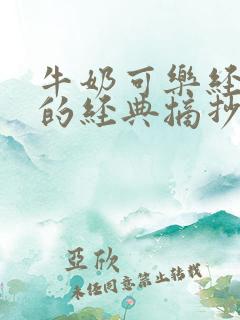 牛奶可樂經
的經典摘抄
亞欣
未經同意禁止轉載